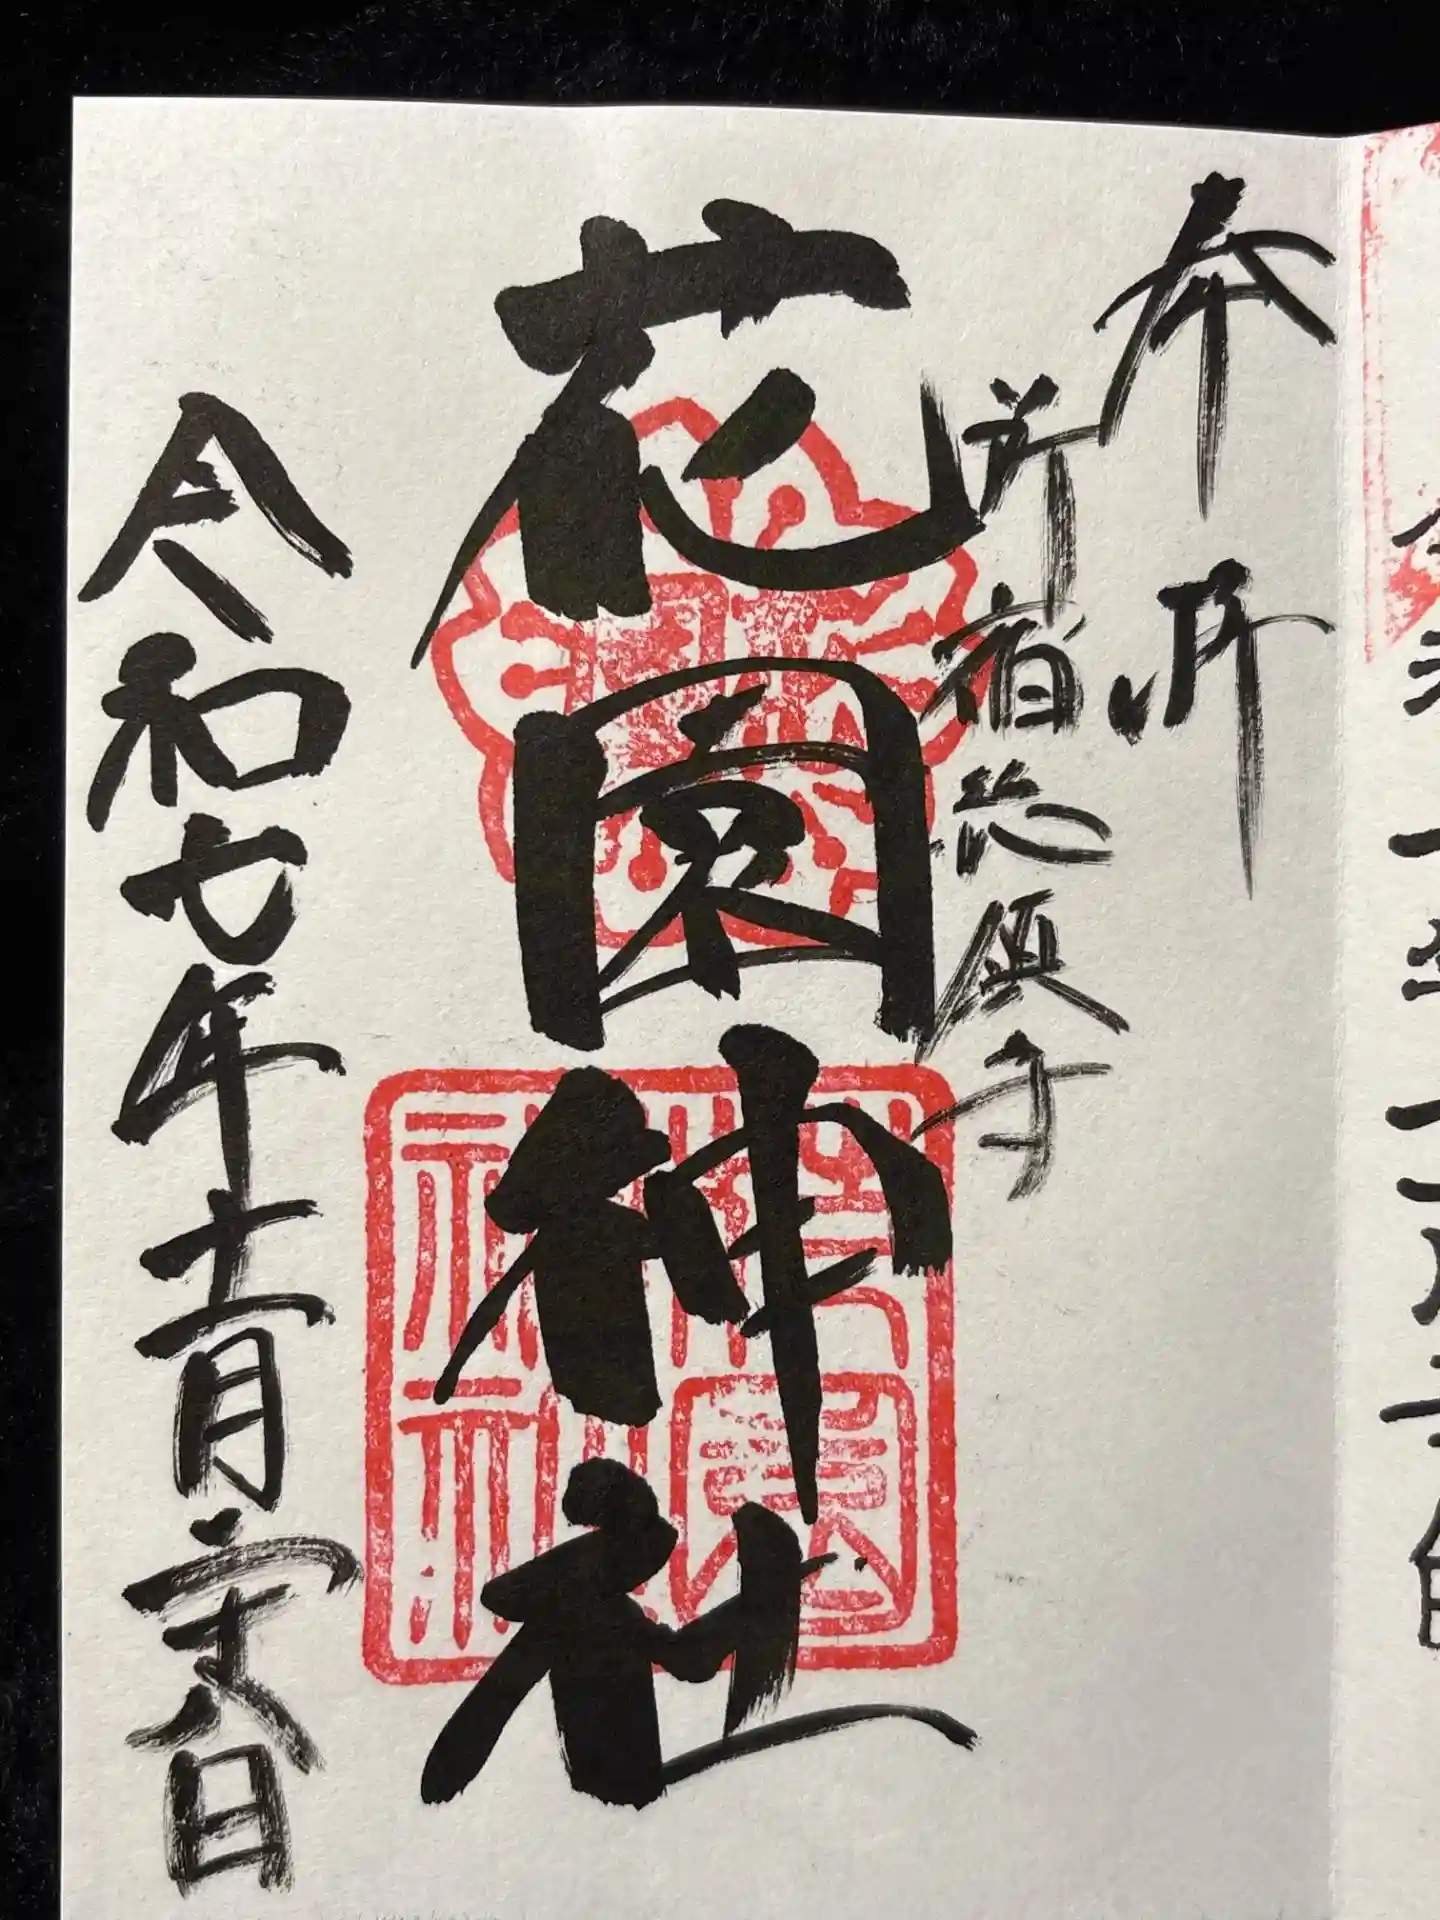 奉拝
新宿総鎮守
花園神社
令和七年十一月二十八日
花園神社